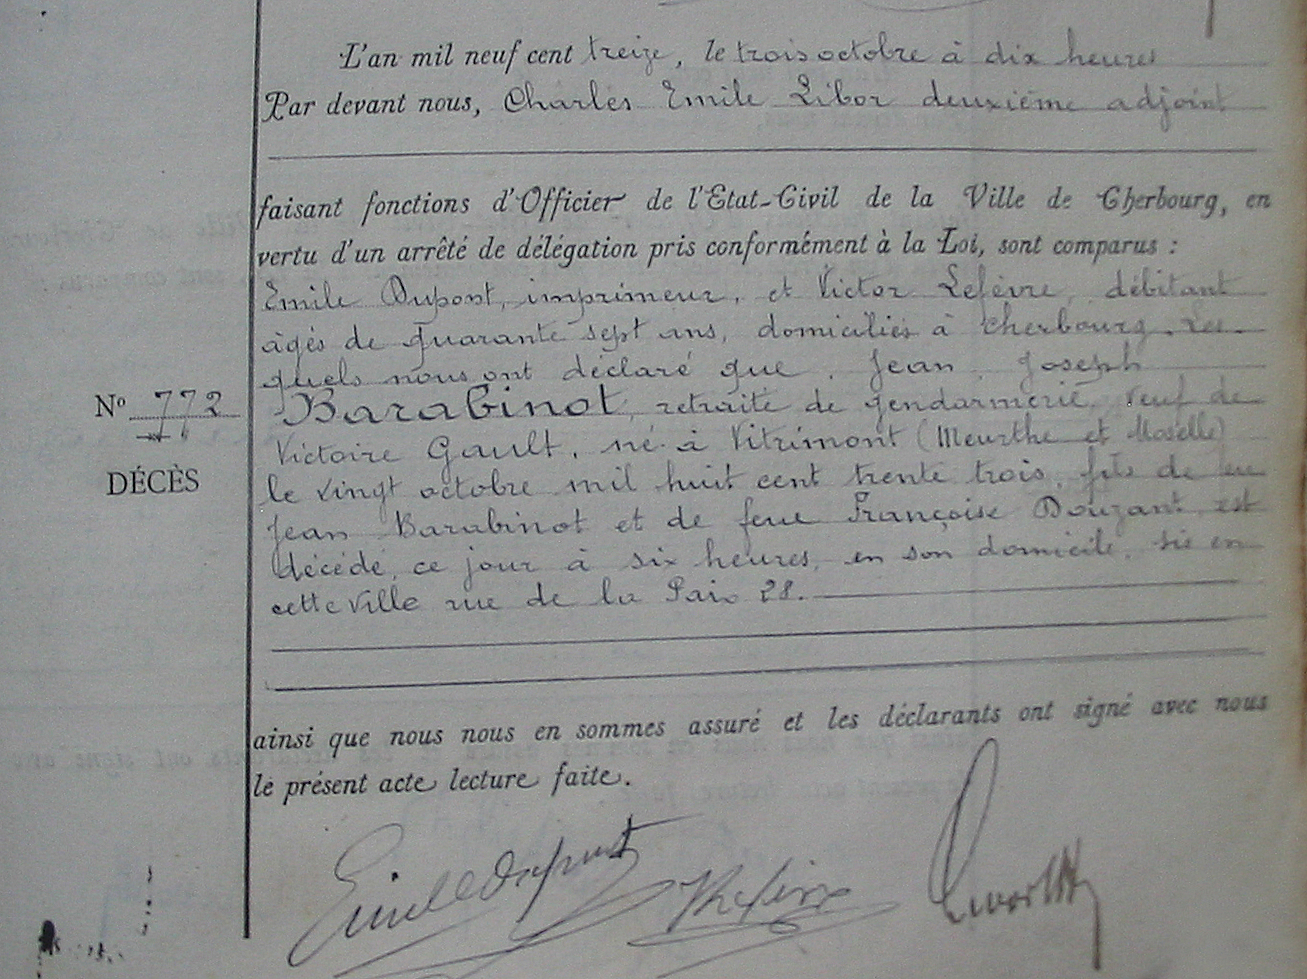 L'an mil neuf cent treize, le trois octobre à dix heures
Par devant nous, Charles Emile Libor deuxième adjoint
faisant fonctions d'Officier de l'Etat-Civil de la Ville de Cherbourg, en
vertu d'un arrêté de délégation pris conformément à la Loi, sont comparus :
Emile Dupont, imprimeur, et Victor Lefèvre, débitant
âgés de quarante sept ans, domiciliés à Cherbourg. Les-
quels nous ont déclaré que, Jean Joseph
Nº 772
Barabinot, retraité de gendarmerie, veuf de
Victoire Gault, né à Vitrimont (Meurthe et Moselle)
DÉCÈS
le vingt octobre mil huit cent trente trois, fils de feu
Jean Barabinot et de feue Françoise Douzant, est
décédé, ce jour à six heures, en son domicile, sis en
cette ville rue de la Paix 28.
ainsi que nous nous en sommes assuré et les déclarants ont signé avec nous
le présent acte lecture faite.
Emile Dupont VLefèvre